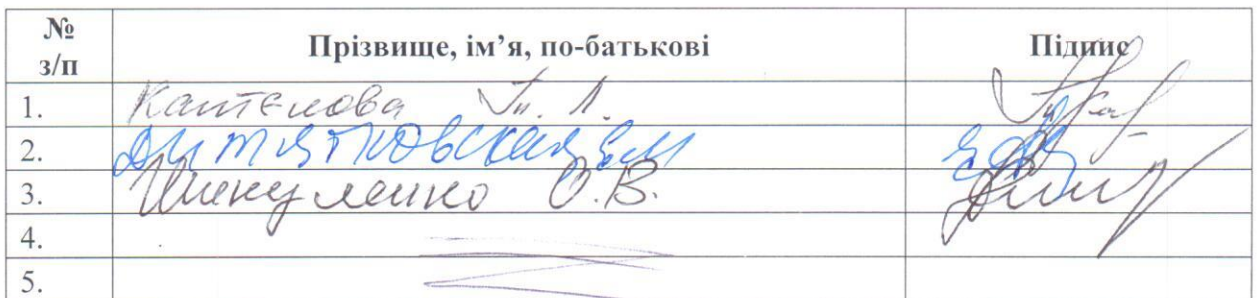 № з/п Прізвище, ім’я, по-батькові Підпис
1. Каптєлова Ін. Л.
2. Дитятковская ЕМ
3. Шикуленко О.В.
4.
5.